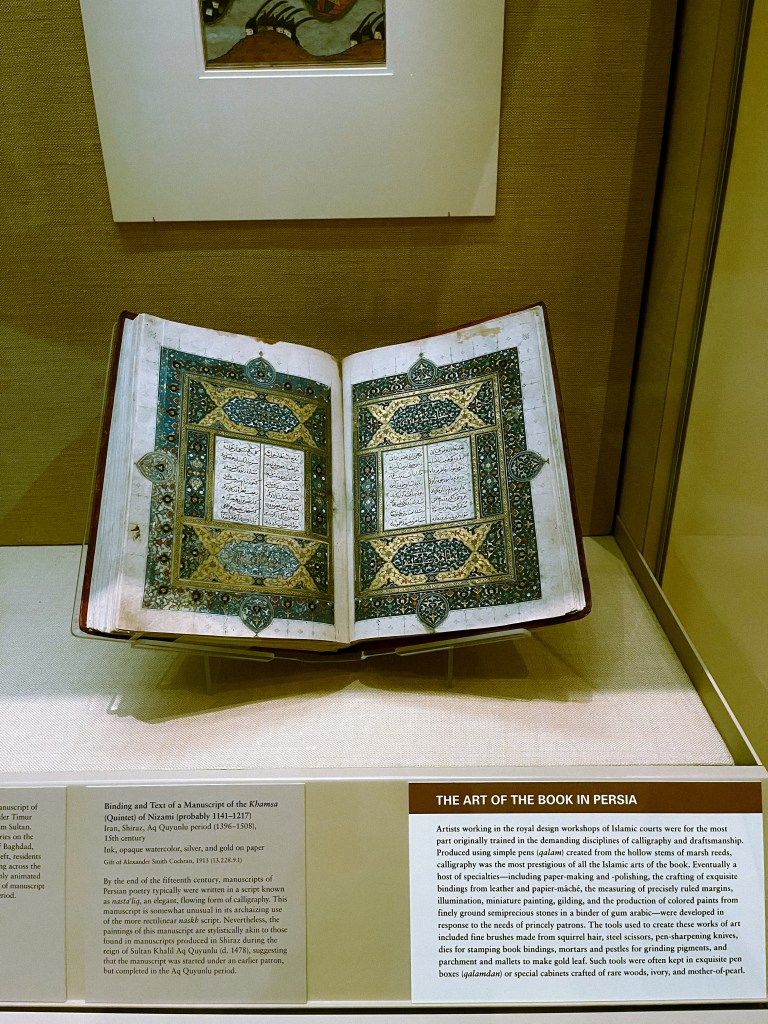 anuscript of
ler Timur
m Sultan,
ries on the
f Baghdad,
eft, residents
ng across the
nly animated
of manuscript
eriod.
Binding and Text of a Manuscript of the Khamsa
(Quintet) of Nizami (probably 1141–1217)
Iran, Shiraz, Aq Quyunlu period (1396–1508),
15th century
Ink, opaque watercolor, silver, and gold on paper
Gift of Alexander Smith Cochran, 1913 (13.228.9.1)
By the end of the fifteenth century, manuscripts of
Persian poetry typically were written in a script known
as nasta'liq, an elegant, flowing form of calligraphy. This
manuscript is somewhat unusual in its archaizing use
of the more rectilinear naskh script. Nevertheless, the
paintings of this manuscript are stylistically akin to those
found in manuscripts produced in Shiraz during the
reign of Sultan Khalil Aq Quyunlu (d. 1478), suggesting
that the manuscript was started under an earlier patron,
but completed in the Aq Quyunlu period.
THE ART OF THE BOOK IN PERSIA
Artists working in the royal design workshops of Islamic courts were for the most
part originally trained in the demanding disciplines of calligraphy and draftsmanship.
Produced using simple pens (qalam) created from the hollow stems of marsh reeds,
calligraphy was the most prestigious of all the Islamic arts of the book. Eventually a
host of specialties—including paper-making and -polishing, the crafting of exquisite
bindings from leather and papier-mâché, the measuring of precisely ruled margins,
illumination, miniature painting, gilding, and the production of colored paints from
finely ground semiprecious stones in a binder of gum arabic—were developed in
response to the needs of princely patrons. The tools used to create these works of art
included fine brushes made from squirrel hair, steel scissors, pen-sharpening knives,
dies for stamping book bindings, mortars and pestles for grinding pigments, and
parchment and mallets to make gold leaf. Such tools were often kept in exquisite pen
boxes (qalamdan) or special cabinets crafted of rare woods, ivory, and mother-of-pearl.